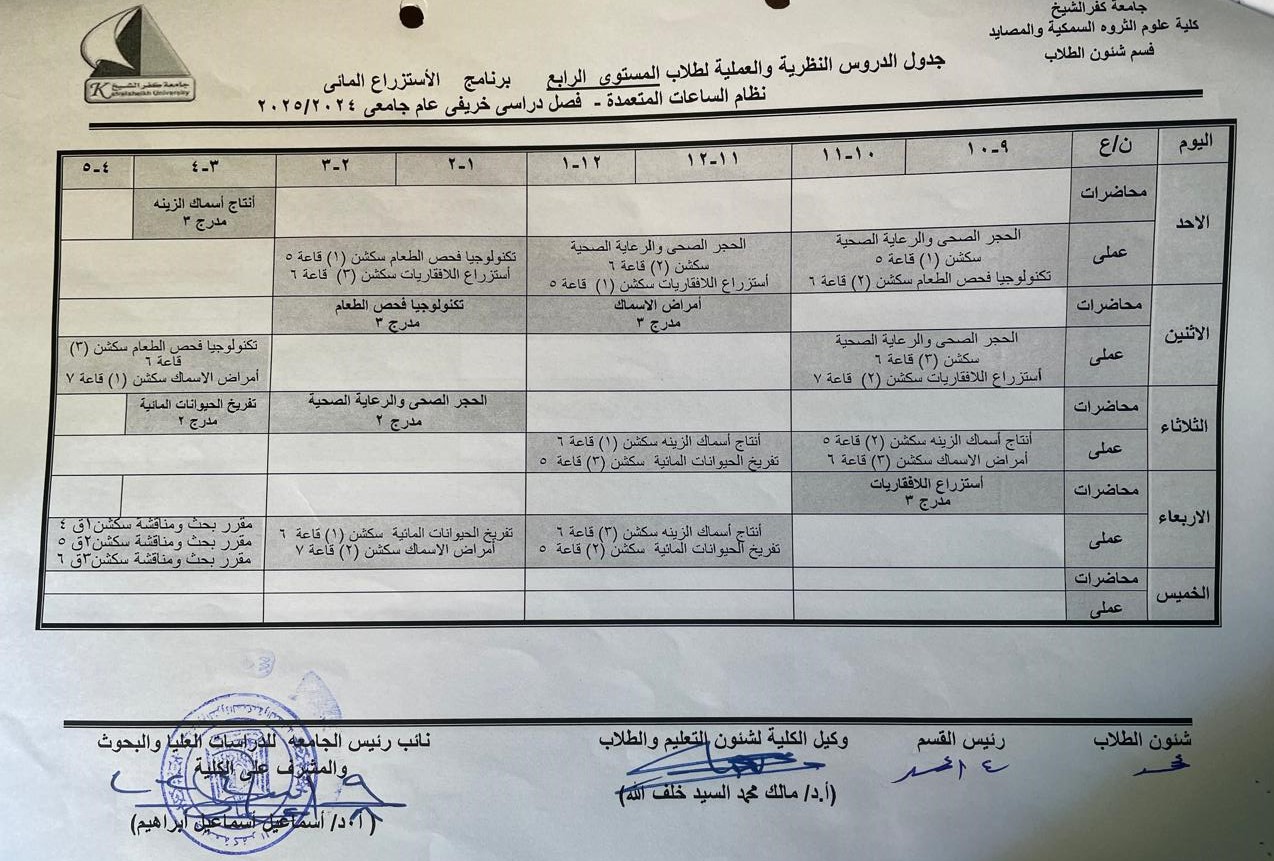 جامعة كفرالشيخ
كلية علوم الثروه السمكية والمصايد
قسم شئون الطلاب
جامعة كفر الشيخ
Kafrelsheikh University
جدول الدروس النظرية والعملية لطلاب المستوى الرابع برنامج الأستزراع المائى
نظام الساعات المتعمدة - فصل دراسى خريفى عام جامعى ٢٠٢٥/٢٠٢٤
اليوم ن/ع ٩-١٠ ١٠-١١ ١١-١٢ ١٢-١ ١-٢ ٢-٣ ٣-٤ ٤-٥
الاحد
محاضرات
أنتاج أسماك الزينه
مدرج ٣
عملى
الحجر الصحى والرعاية الصحية
سكشن (١) قاعة ٥
تكنولوجيا فحص الطعام سكشن (٢) قاعة ٦
الحجر الصحى والرعاية الصحية
سكشن (٢) قاعة ٦
أستزراع اللافقاريات سكشن (١) قاعة ٥
تكنولوجيا فحص الطعام سكشن (١) قاعة ٥
أستزراع اللافقاريات سكشن (٣) قاعة ٦
الاثنين
محاضرات
أمراض الاسماك
مدرج ٣
تكنولوجيا فحص الطعام
مدرج ٣
عملى
الحجر الصحى والرعاية الصحية
سكشن (٣) قاعة ٦
أستزراع اللافقاريات سكشن (٢) قاعة ٧
تكنولوجيا فحص الطعام سكشن (٣)
قاعة ٦
أمراض الاسماك سكشن (١) قاعة ٧
الثلاثاء
محاضرات
الحجر الصحى والرعاية الصحية
مدرج ٢
تفريخ الحيوانات المائية
مدرج ٢
عملى
أنتاج أسماك الزينه سكشن (٢) قاعة ٥
أمراض الاسماك سكشن (٣) قاعة ٦
أنتاج أسماك الزينه سكشن (١) قاعة ٦
تفريخ الحيوانات المائية سكشن (٣) قاعة ٥
الاربعاء
محاضرات
أستزراع اللافقاريات
مدرج ٣
عملى
أنتاج أسماك الزينه سكشن (٣) قاعة ٦
تفريخ الحيوانات المائية سكشن (٢) قاعة ٥
تفريخ الحيوانات المائية سكشن (١) قاعة ٦
أمراض الاسماك سكشن (٢) قاعة ٧
مقرر بحث ومناقشة سكشن١ق ٤
مقرر بحث ومناقشة سكشن٢ق ٥
مقرر بحث ومناقشة سكشن٣ق ٦
الخميس
محاضرات
عملى
شئون الطلاب
رئيس القسم
وكيل الكلية لشئون التعليم والطلاب
(أ.د/ مالك محمد السيد خلف الله)
نائب رئيس الجامعه للدراسات العليا والبحوث
والمشرف على الكلية
(أ.د/ أسماعيل أسماعيل ابراهيم)